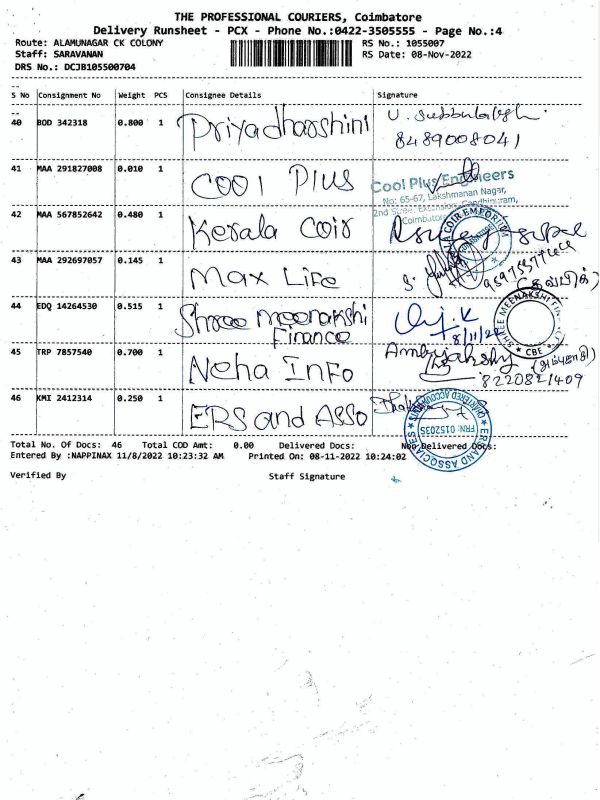 THE PROFESSIONAL COURIERS, Coimbatore
Delivery Runsheet - PCX - Phone No.:0422-3505555 - Page No.:4
Route: ALAMUNAGAR CK COLONY RS No.: 1055007
Staff: SARAVANAN RS Date: 08-Nov-2022
DRS No.: DCJB105500704
S No Consignment No Weight PCS Consignee Details Signature
40 BOD 342318 0.800 1 Priyadharshini
8489008041
41 MAA 291827008 0.010 1 COOl Plus
Cool Plus Engineers
No: 65-67, Lakshmanan Nagar,
2nd Street, Extension, Gandhipuram,
Coimbatore
42 MAA 567852642 0.480 1 Kerala Coir
COIR EMPORIUM
43 MAA 292697057 0.145 1 Max Life
44 EDQ 14264530 0.515 1 Shree Meenakshi
Finance
8/11/22
SHREE MEENAKSHI
CBE
45 TRP 7857540 0.700 1 Neha Info
8220821409
46 KMI 2412314 0.250 1 ERS and Asso
CHARTERED ACCOUNTANTS
FRN: 015203S
AND ASSOCIATES
Total No. Of Docs: 46 Total COD Amt: 0.00 Delivered Docs: Non Delivered Docs:
Entered By :NAPPINAX 11/8/2022 10:23:32 AM Printed On: 08-11-2022 10:24:02
Verified By Staff Signature